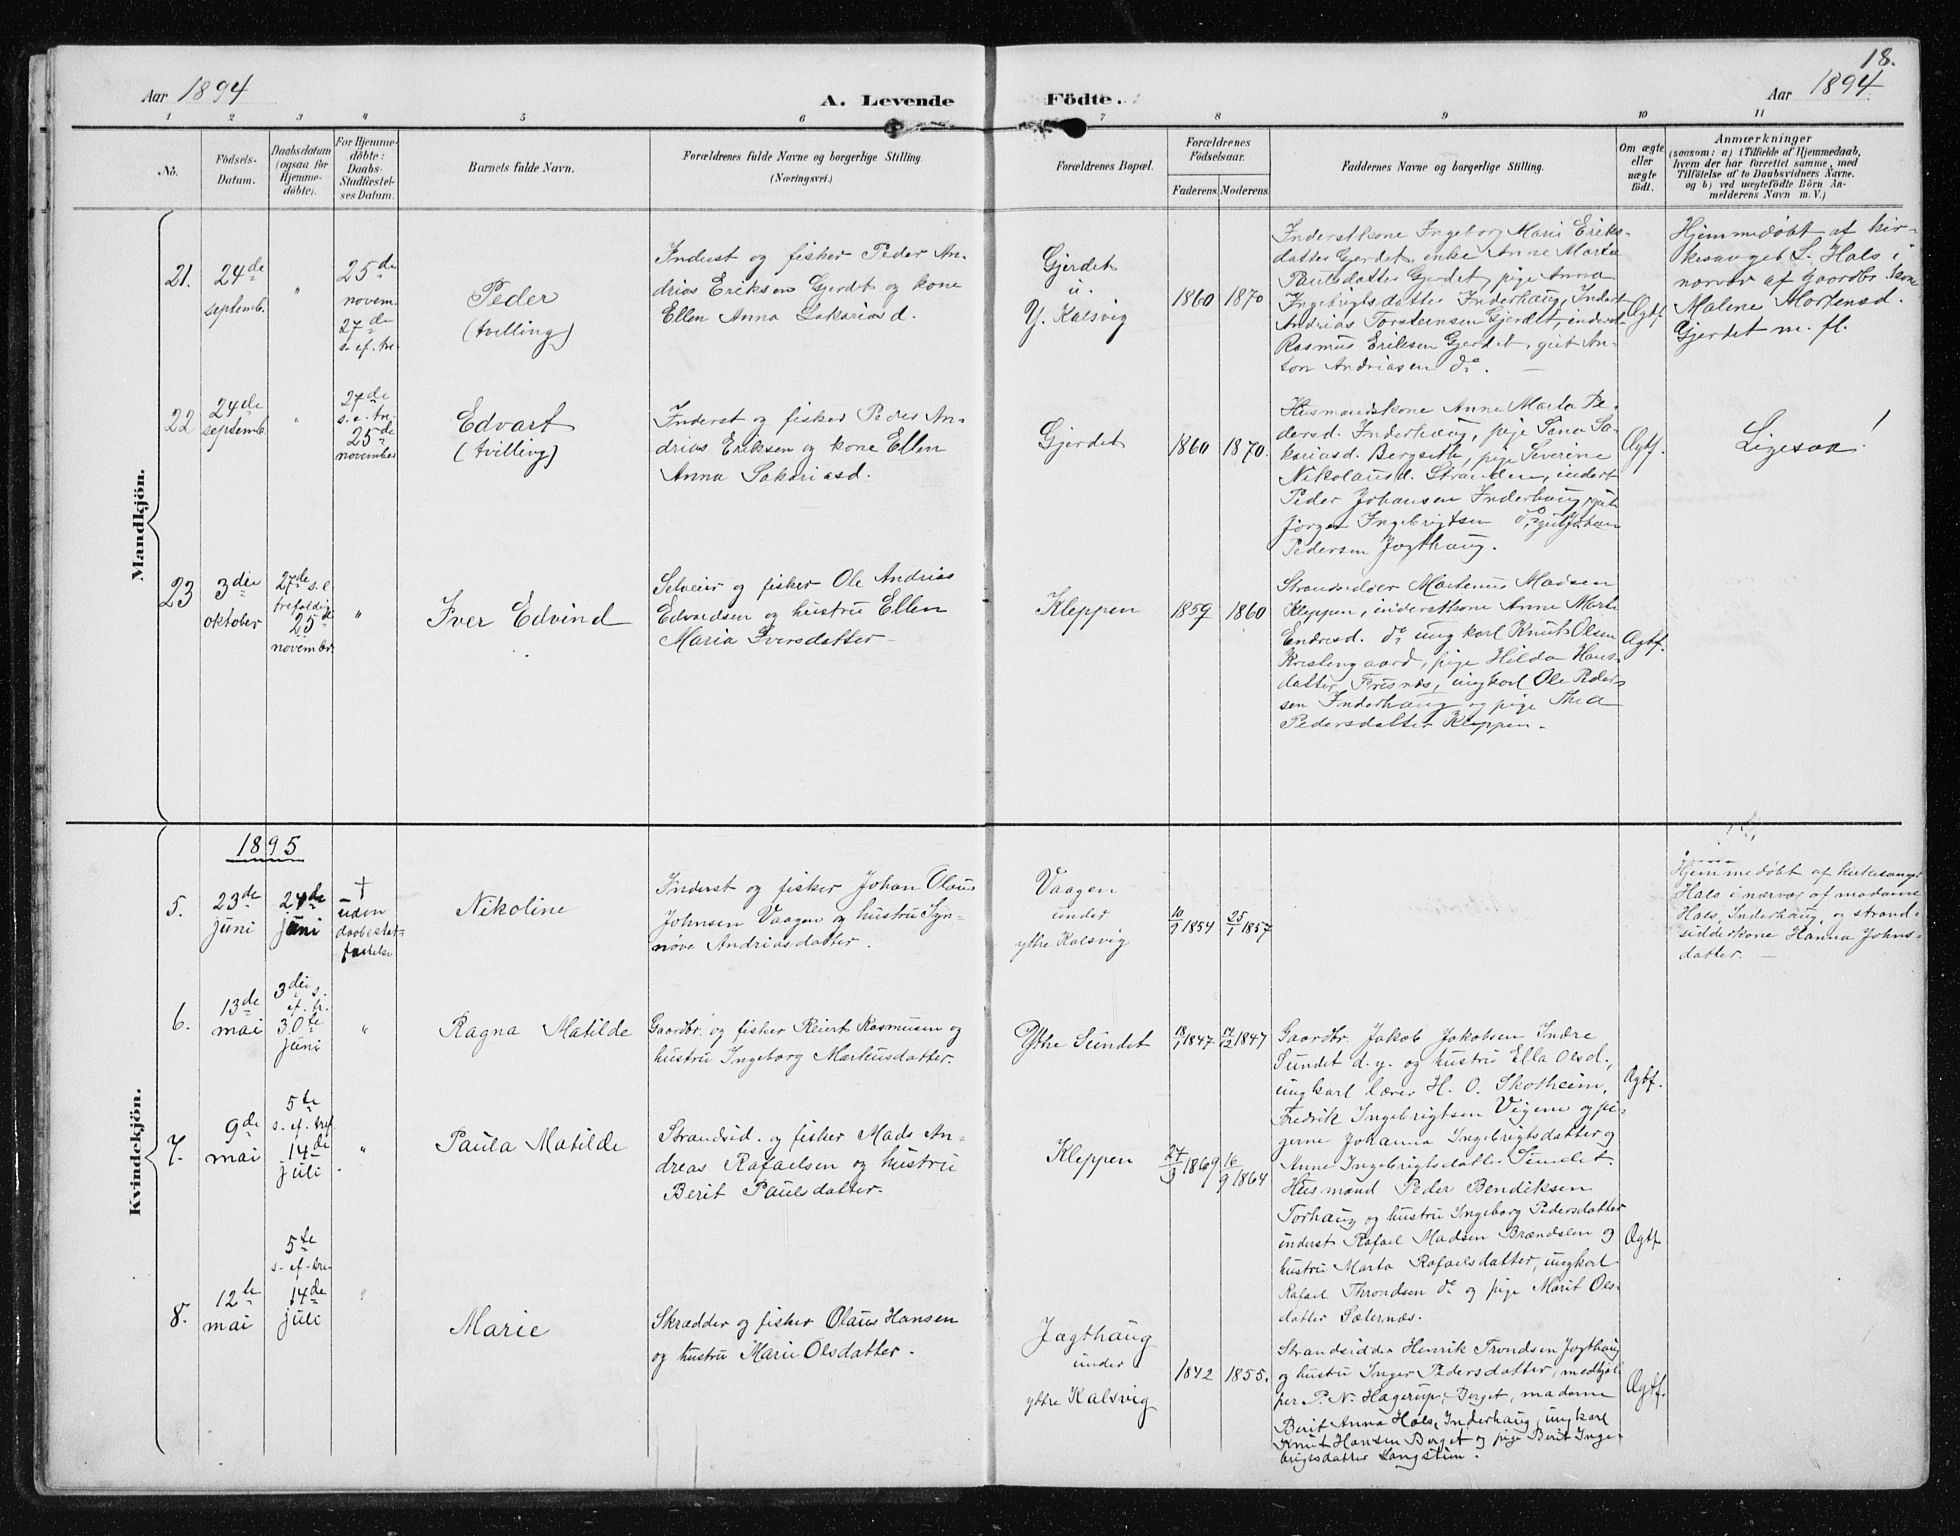 18.
Aar 1894
A. Levende Födte.
Aar 1894
1 2 3 4 5 6 7 8 9 10 11
No.
Födsels-
Datum.
Daabsdatum
(ogsaa for
Hjemme-
döbte).
For Hjemme-
döbte:
Daabs-
Stadfæstel-
ses Datum.
Barnets fulde Navn.
Forældrenes fulde Navne og borgerlige Stilling.
(Næringsvei.)
Forældrenes Bopæl.
Forældrenes
Födselsaar.
Faderens. Moderens.
Faddernes Navne og borgerlige Stilling.
Om ægte
eller
uægte
födt.
Anmærkninger
(saasom: a) i Tilfælde af Hjemmedaab,
hvem der har forrettet samme, med
Tilföielse af to Daabsvidners Navne,
og b) ved uægtefödte Börn An-
melderens Navn m. V.)
Mandkjön.
21.
24de
septemb.
"
25de
novem.
27de
s. ef. tre.
Peder
(tvilling)
Inderst og fisker Peder An-
drias Eriksen Gjerdet og kone
Ellen Anna Sakariasd.
Gjerdet
u.
Y. Kalsvig
1860 1870
Inderstkone Ingeborg Marie Eriks-
datter Gjerdet, enke Anne Marta
Paulsdatter Gjerdet, pige Anna
Ingebrigtsdatter Inderhaug, Inderst
Andrias Torsteensen Gjerdet, inderst
Rasmus Eriksen Gjerdet, gut An-
ton Andriasen do.
Ægtf.
Hjemmedøbt af kir-
kesanger L. Hals i
nærvær af gaardbr. kone
Malene Mortensd.
Gjerdet m. fl.
22
24de
septemb.
"
27de
s. e. tre.
25de
november
Edvart
(tvilling)
Inderst og fisker Peder An-
drias Eriksen og kone Ellen
Anna Sakariasd.
Gjerdet
1860 1870.
Husmandskone Anne Marta Pe-
dersd. Inderhaug, pige Sana Sa-
kariasd. Bergseth, pige Severine
Nikolausd. Stranden, inderst
Peder Johansen Inderhaug, gut
Jørgen Ingebrigtsen do, gut Johan
Pedersen Jagthaug.
Ægtf.
Ligesaa!
23
3die
oktober
27de s. e.
trefoldig.
25de
november
"
Iver Edvind
Selveier og fisker Ole Andrias
Edvardsen og hustru Ellen
Maria Iversdatter
Kleppen
1859 1860
Strandsidder Martenus Madsen
Kleppen, inderstkone Anne Marte
Endresd. do. ungkarl Knut Olsen
Kristengaard, pige Hilda Hans-
datter Fresnes, ungkarl Ole Peder-
sen Inderhaug og pige Thea
Pedersdatter Kleppen.
Ægtf.
Kvindekjön.
1895
5.
23de
juni
24de
juni
†
uden
daabsstad-
fæstelse
Nikoline
Inderst og fisker Johan Olaus
Johnsen Vaagen og hustru Syn-
nøve Andriasdatter.
Vaagen
under
ytre Kalsvig
10/9 1854 25/1 1857
Hjemmedøbt af kirkesanger
Hals i nærvær af madame
Hals, Inderhaug, og strand-
sidderkone Hanna Johns-
datter.
6.
13de
mai
3die s.
ef. tr.
30te
juni
"
Ragna Matilde
Gaardbr. og fisker Reiert Rasmusen og
hustru Ingeborg Markusdatter.
Ytre Sundet
18/1 1847 17/12 1847
Gaardbr. Jakob Jakobsen Indre
Sundet d. y. og hustru Ella Olsd.,
ungkarl lærer H. O. Skotheim,
Fredrik Ingebrigtsen Vigene og pi-
gerne Johanna Ingebrigtsdatter og
Anne Ingebrigtsdatter Sundet.
Ægtf.
7.
9de
mai
5te
s. ef. tref.
14de
juli
"
Paula Matilde
Strandsid. og fisker Mads An-
dreas Rafaelsen og hustru
Berit Paulsdatter.
Kleppen
24/3 1869 16/9 1864
Husmand Peder Bendiksen
Torhaug og hustru Ingeborg Pedersdatter
inderst Rafael Madsen Brændslen og
hustru Marta Rafaelsdatter, ungkarl
Rafael Throndsen do og pige Marit Ols-
datter Sæternæs.
Ægtf.
8.
12te
mai
5te
s. ef. tre.
14de
juli
"
Marie
Skrædder og fisker Olaus Hansen
og hustru Marie Olsdatter.
Jagthaug
under
ytre Kalsvig
1842 1855.
Strandsidder Henrik Trondsen Jagthaug
og hustru Inger Pedersdatter, medhjæl-
per P. N. Hagerup, Berget, madame
Berit Anna Hals, Inderhaug, ungkarl
Knut Hansen Berget og pige Berit Inge-
brigtsdatter Langstein.
Ægtf.